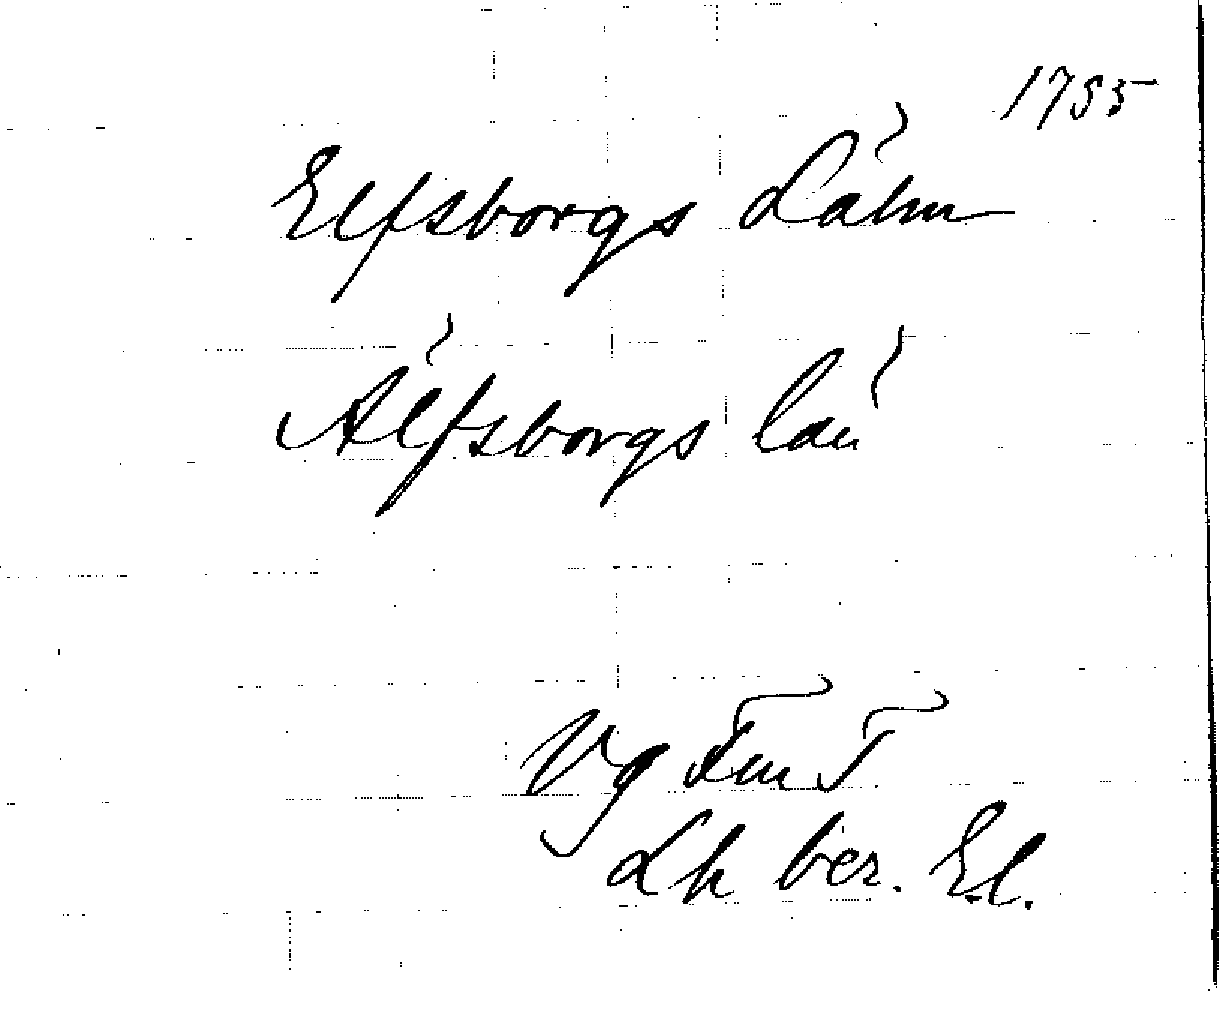 1755
Elfsborgs Lähn
Älfsborgs län
Vg Fm T
Lh ber. El.